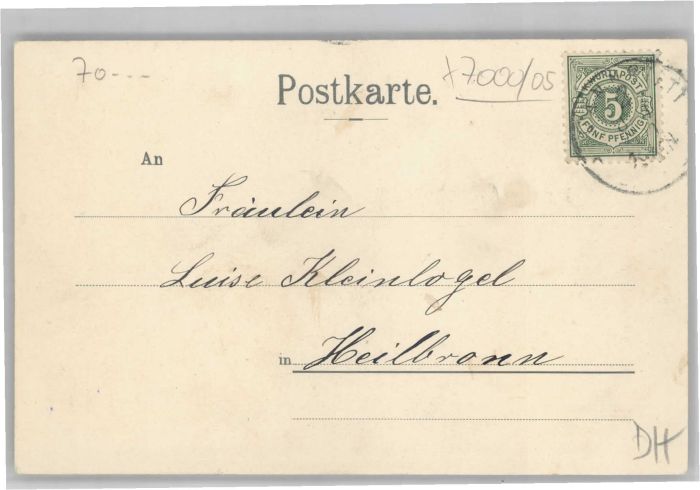 70---
+7000/05
Postkarte.
K. WÜRTT. POST
5
FÜNF PFENNIG
An
Fräulein
Luise Kleinlogel
in Heilbronn
DH